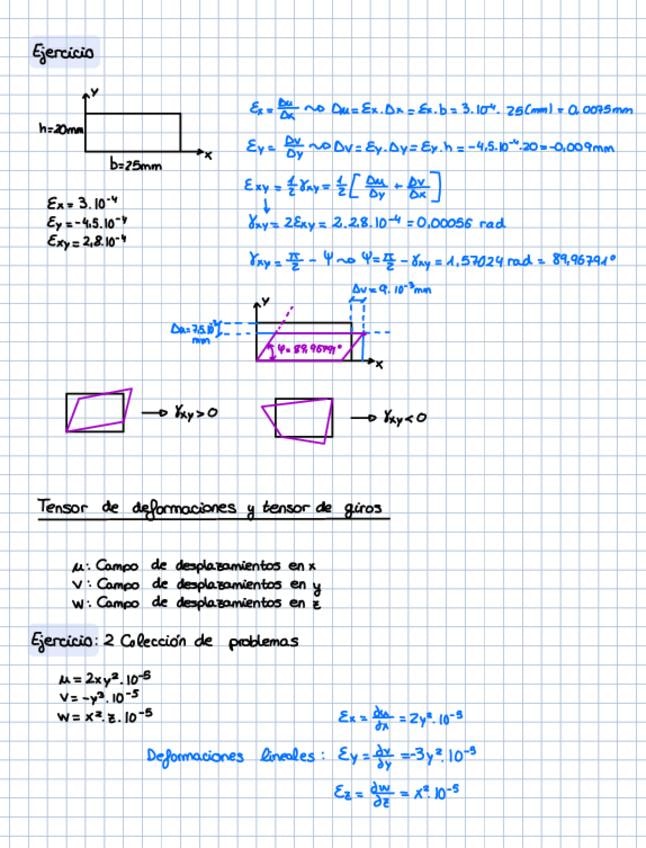 Ejercicio
y
h=20mm
x
b=25mm
εx = 3.10⁻⁴
εy = -4,5.10⁻⁴
εxy = 2,8.10⁻⁴
εx = Δu/Δx ⇝ Δu = εx.Δx = εx.b = 3.10⁻⁴. 25(mm) = 0,0075mm
εy = Δv/Δy ⇝ Δv = εy.Δy = εy.h = -4,5.10⁻⁴.20 = -0,009mm
εxy = 1/2 γxy = 1/2 [Δu/Δy + Δv/Δx]
↓
γxy = 2εxy = 2.2,8.10⁻⁴ = 0,00056 rad
γxy = π/2 - Ψ ⇝ Ψ = π/2 - γxy = 1,57024 rad = 89,96791°
Δv = 9.10⁻³mm
y
mm
Ψ = 89,96791°
x
→ γxy > 0
→ γxy < 0
Tensor de deformaciones y tensor de giros
u: Campo de desplazamientos en x
v: Campo de desplazamientos en y
w: Campo de desplazamientos en z
Ejercicio: 2 Colección de problemas
u = 2xy².10⁻⁵
v = -y³.10⁻⁵
w = x².z.10⁻⁵
εx = ∂u/∂x = 2y².10⁻⁵
Deformaciones lineales: εy = ∂v/∂y = -3y².10⁻⁵
εz = ∂w/∂z = x².10⁻⁵